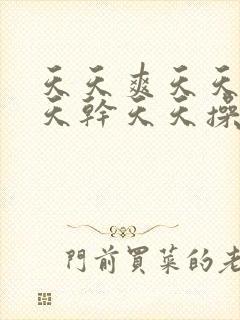 天天爽天天
天幹天天操
門前買菜的老